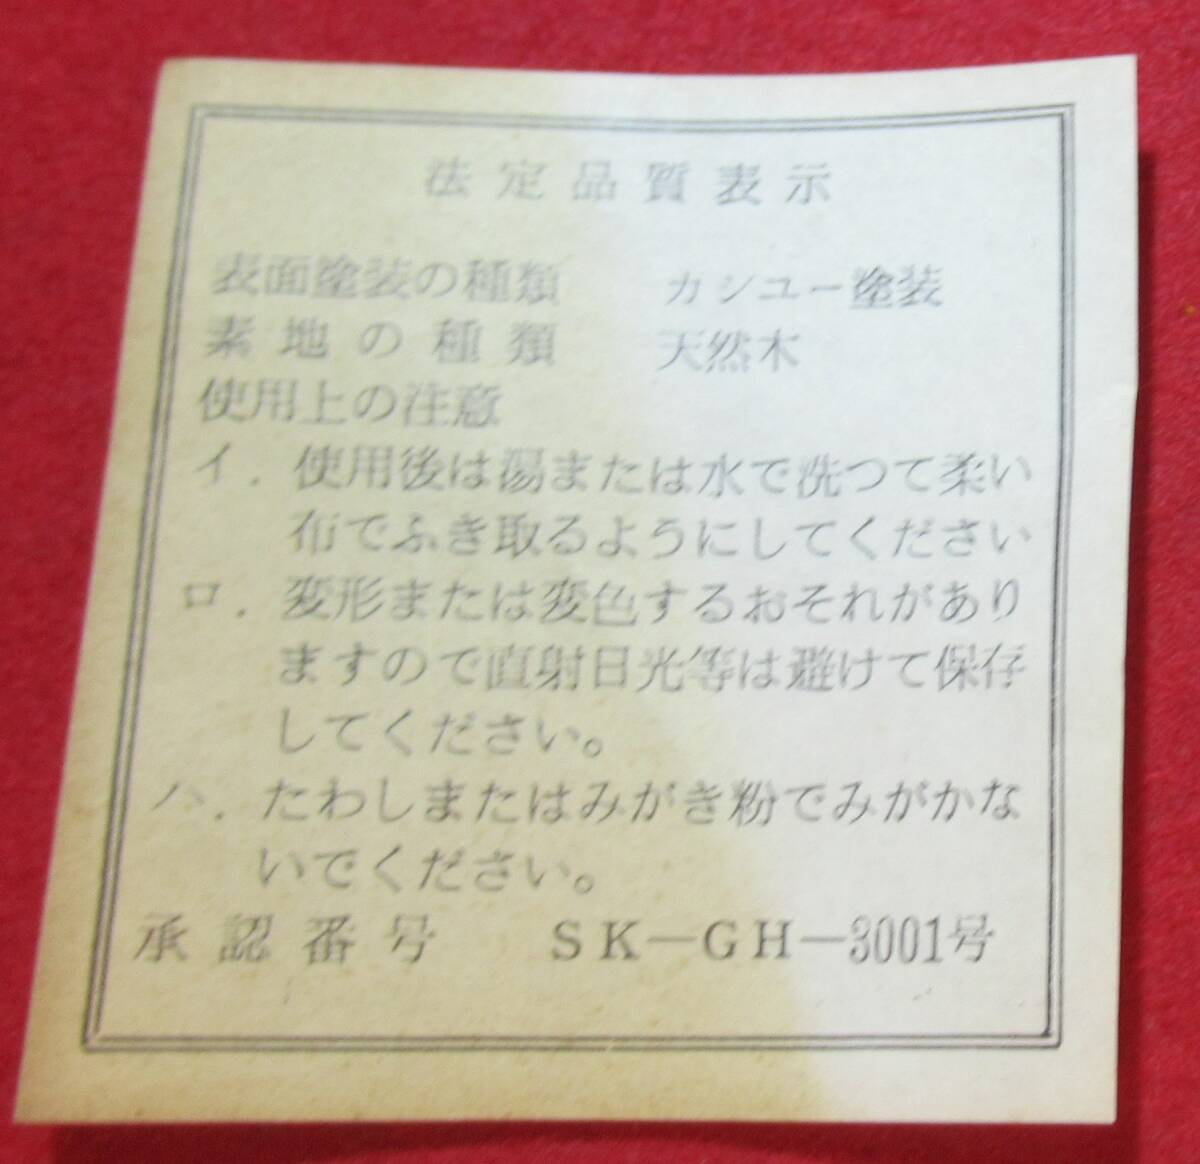 法定品質表示
表面塗装の種類　カシユー塗装
素地の種類　天然木
使用上の注意
イ．使用後は湯または水で洗つて柔い
布でふき取るようにしてください
ロ．変形または変色するおそれがあり
ますので直射日光等は避けて保存
してください。
ハ．たわしまたはみがき粉でみがかな
いでください。
承認番号　SK—GH—3001号